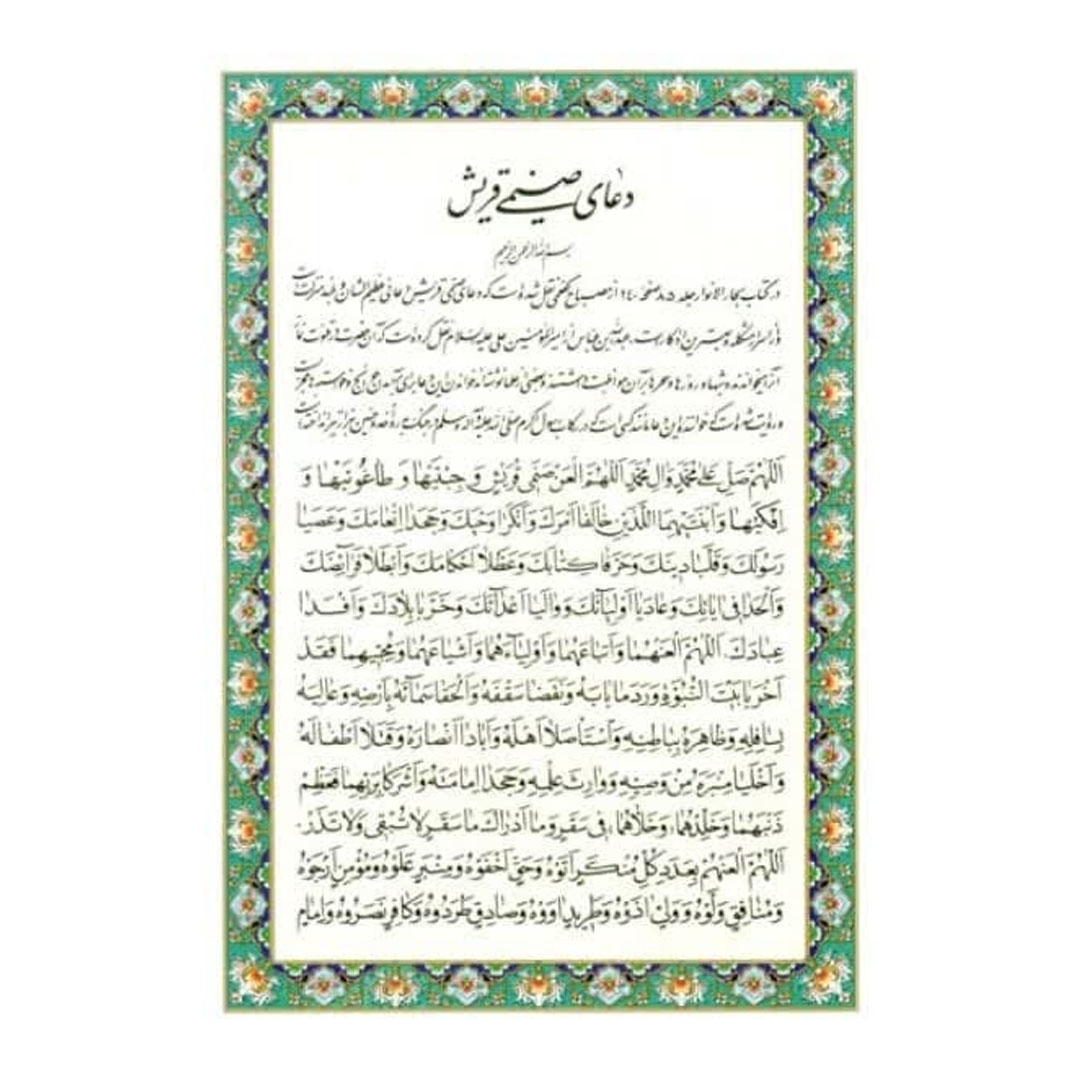 دعای صنمی قریش
بسم الله الرحمن الرحیم
در کتاب بحار الانوار جلد ۸۵ صفحه ۲۴۰ از مصباح کفعمی نقل شده است که دعای صنمی قریش دعائی عظیم الشان و بلند منزلت است
و از اسرار مشکله و بهترین اذکار است، عبدالله بن عباس از امیرالمؤمنین علی علیه السلام نقل کرده است که آن حضرت در قنوت نماز
آنرا میخوانده و شبها و روزها و سحرها بر آن مواظبت داشتند و بعضی علما نوشته‌اند خواندن این دعا برای
و روایت شده است که خواننده این دعا مانند کسی است که در رکاب رسول اکرم صلی الله علیه و آله و سلم در جنگ بدر و احد و حنین هزار تیر انداخته
اَللّهُمَّ صَلِّ عَلى مُحَمَّدٍ وَالِ مُحَمَّدٍ اَللّهُمَّ الْعَنْ صَنَمَى قُرَيْشٍ وَ جِبْتَيْها وَ طاغُوتَيْها وَ
اِفْكَيْها وَابْنَتَيْهِمَا اللَّذَيْنِ خالَفا اَمْرَكَ وَاَنْكَرا وَحْيَكَ وَجَحَدا اِنْعامَكَ وَعَصَيا
رَسُولَكَ وَقَلَّبا دينَكَ وَحَرَّفا كِتابَكَ وَعَطَّلا اَحْكامَكَ وَاَبْطَلا فَرآئِضَكَ
وَاَلْحَدا فى اياتِكَ وَعادَيا اَوْلِيآئَكَ وَوالَيا اَعْدآئَكَ وَخَرَّبا بِلادَكَ وَاَفْسَدا
عِبادَكَ. اَللّهُمَّ الْعَنْهُما وَاَتْباعَهُما وَاَوْلِيآءَهُما وَاَشْياعَهُما وَمُحِبّيهِما فَقَدْ
اَخْرَبا بَيْتَ النُّبُوَّةِ وَرَدَما بابَهُ وَنَقَضا سَقْفَهُ وَاَلْحَقا سَمآئَهُ بِاَرْضِهِ وَعالِيَهُ
بِسافِلِهِ وَظاهِرَهُ بِباطِنِهِ وَاسْتَاْصَلا اَهْلَهُ وَاَبادا اَنْصارَهُ وَقَتَلا اَطْفالَهُ
وَاَخْلَيا مِنْبَرَهُ مِنْ وَصِيِّهِ وَوارِثِ عِلْمِهِ وَجَحَدا اِمامَتَهُ وَاَشْرَكا بِرَبِّهِما فَعَظِّمْ
ذَنْبَهُما وَخَلِّدْهُما، وَخَلِّدْهُما، فى سَقَرٍ وَما اَدْراكَ ما سَقَرُ لا تُبْقى وَلا تَذَرُ.
اَللّهُمَّ الْعَنْهُمْ بِعَدَدِ كُلِّ مُنْكَرٍ اَتَوْهُ وَحَقٍّ اَخْفَوْهُ وَمِنْبَرٍ عَلَوْهُ وَمُؤْمِنٍ اَرْجَوْهُ
وَمُنافِقٍ وَلَّوْهُ وَوَلِىٍّ اذَوْهُ وَطَريدٍ اوَوْهُ وَصادِقٍ طَرَدُوهُ وَكافِرٍ نَصَرُوهُ وَاِمامٍ